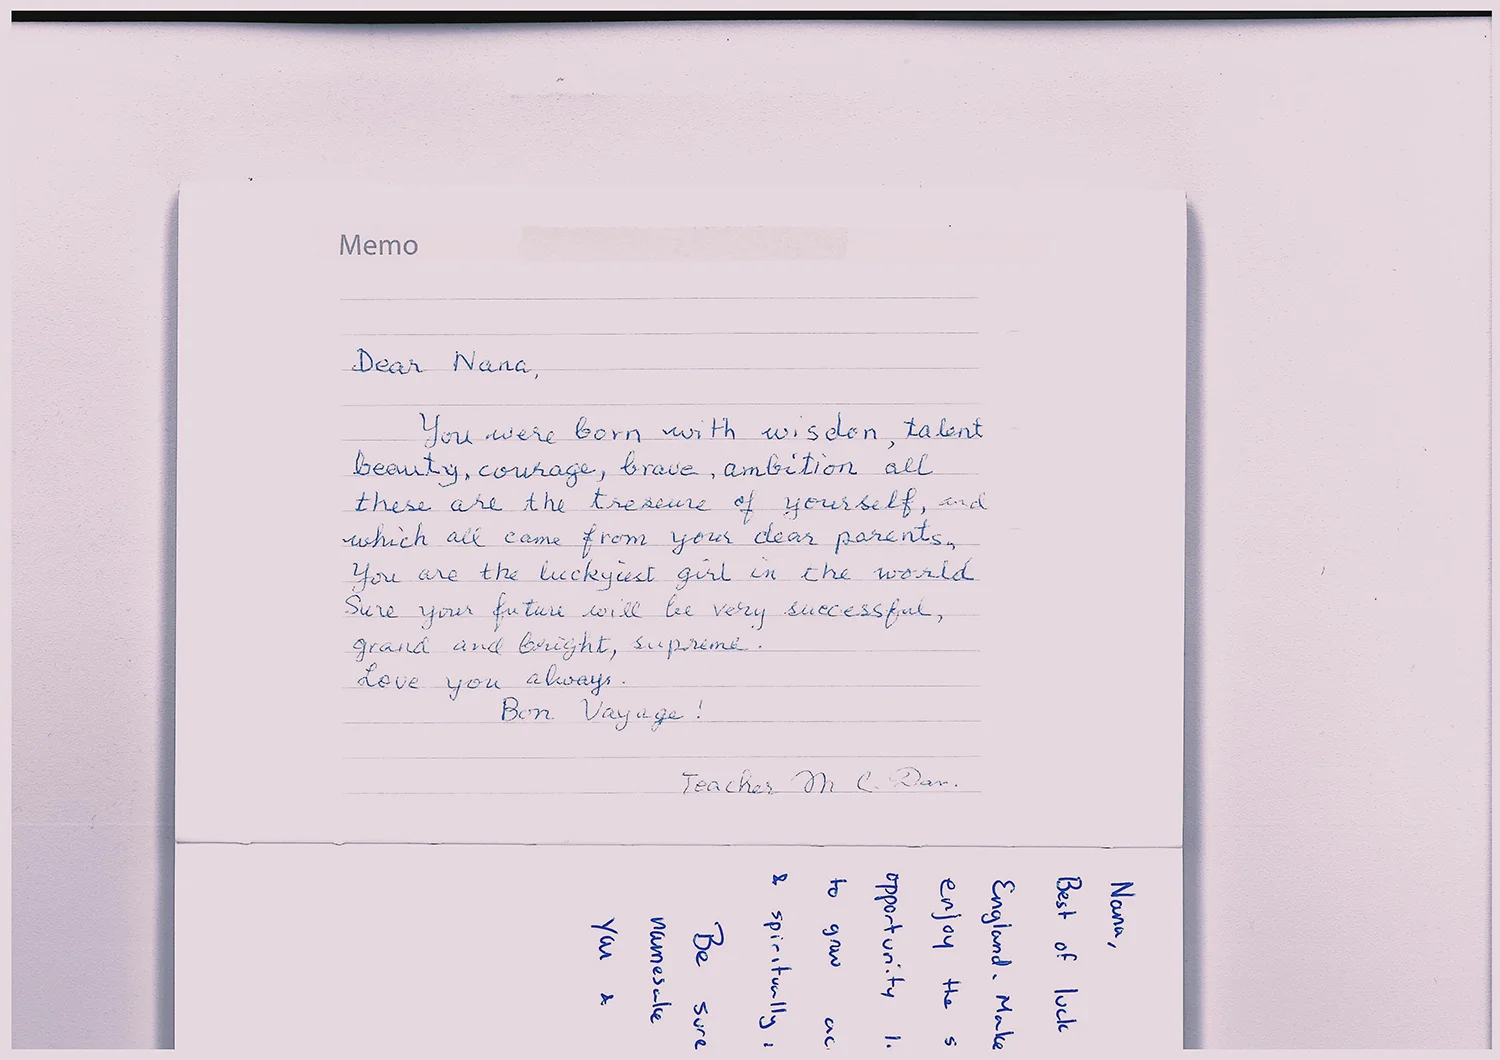 Memo
Dear Nana,
You were born with wisdon, talent
beauty, courage, brave, ambition all
these are the treseure of yourself, and
which all came from your dear parents.
You are the luckyiest girl in the world
Sure your future will be very successful,
grand and bright, supreme.
Love you always.
Bon Vayage!
Teacher M C. Daw.
Nana,
Best of luck
England. Make
enjoy the s
opportunity
to grow ac
& spiritually
Be sure
namesake
you &